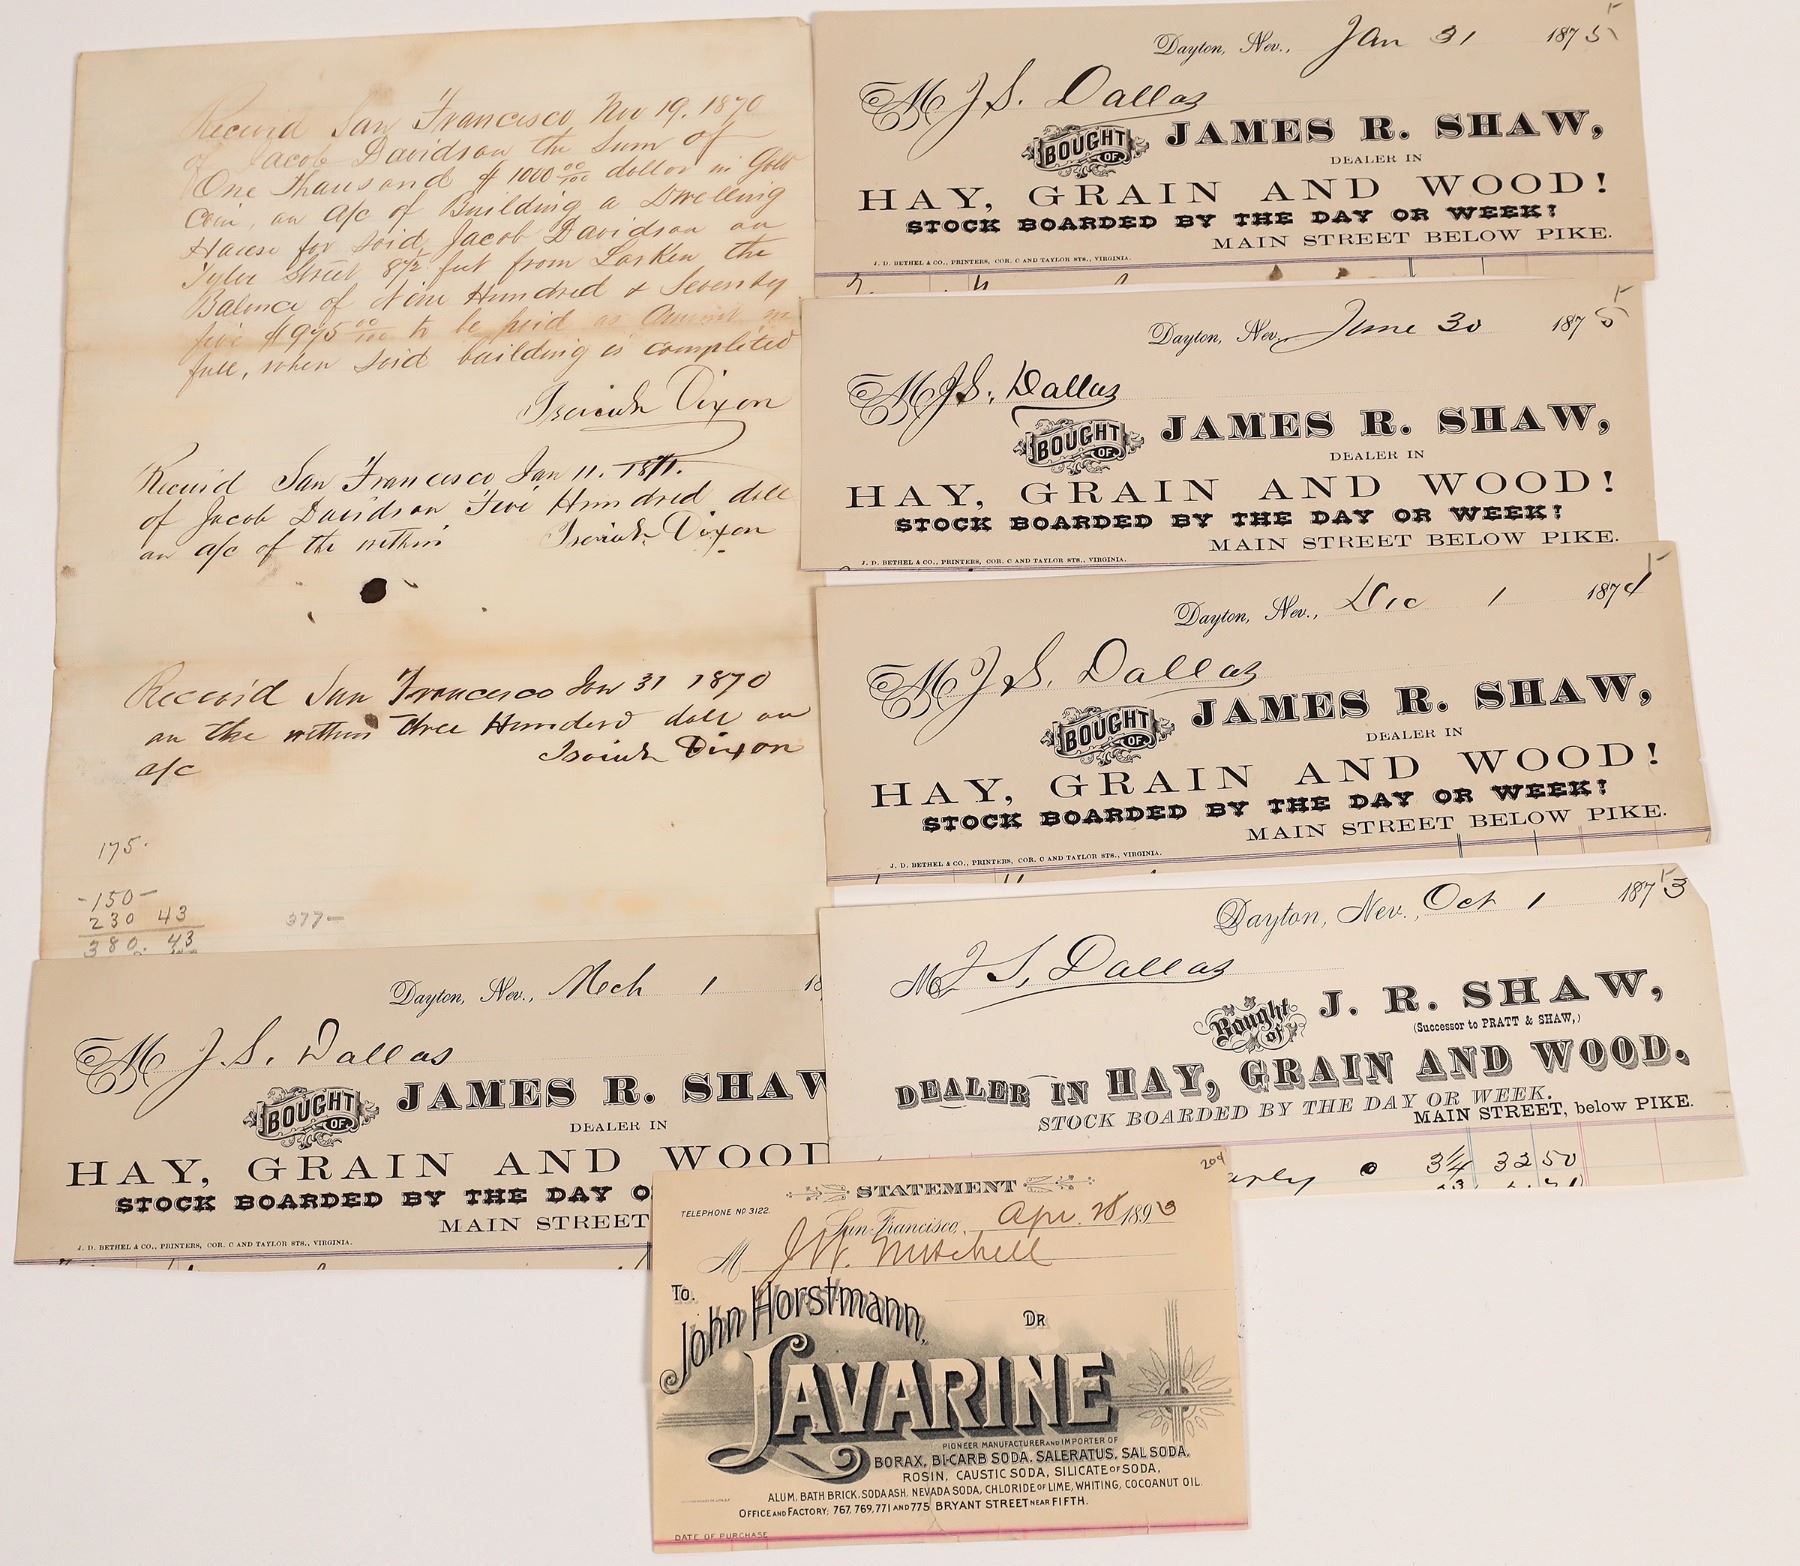 Receivd San Francisco Nov 19. 1870
of Jacob Davidson the Sum of
One Thausand $ 1000 00/100 dollor in Gold
Coin, an a/c of Building a Dwelling
Hause for said, Jacob Davidson an
Tyler Street 87½ feet from Larken the
Balance of Nine Hundred & Seventy
five $975 00/100 to be paid as Amount in
full, when said building is completed
Isaiah Dixon
Receivd San Francisco Jan 11. 1871.
of Jacob Davidson Five Hundred doll
an a/c of the within Isaiah Dixon
Receivd San Francisco Jan 31 1870
an the within three Hunderd doll an
a/c Isaiah Dixon
175.
-150-
230 43
380. 43
377-
Dayton, Nev., Jan 31 1875
M J. S. Dallas
BOUGHT OF JAMES R. SHAW,
DEALER IN
HAY, GRAIN AND WOOD!
STOCK BOARDED BY THE DAY OR WEEK!
MAIN STREET BELOW PIKE.
J. D. BETHEL & CO., PRINTERS, COR. C AND TAYLOR STS., VIRGINIA.
Dayton, Nev., June 30 1875
M J. S. Dallas
BOUGHT OF JAMES R. SHAW,
DEALER IN
HAY, GRAIN AND WOOD!
STOCK BOARDED BY THE DAY OR WEEK!
MAIN STREET BELOW PIKE.
J. D. BETHEL & CO., PRINTERS, COR. C AND TAYLOR STS., VIRGINIA.
Dayton, Nev., Dec 1 1874
M J. S. Dallas
BOUGHT OF JAMES R. SHAW,
DEALER IN
HAY, GRAIN AND WOOD!
STOCK BOARDED BY THE DAY OR WEEK!
MAIN STREET BELOW PIKE.
J. D. BETHEL & CO., PRINTERS, COR. C AND TAYLOR STS., VIRGINIA.
Dayton, Nev., Oct 1 1873
M J. S. Dallas
Bought of J. R. SHAW,
(Successor to PRATT & SHAW,)
DEALER IN HAY, GRAIN AND WOOD.
STOCK BOARDED BY THE DAY OR WEEK.
MAIN STREET, below PIKE.
3¼ 32 50
Dayton, Nev., Mch 1 18
M J. S. Dallas
BOUGHT OF JAMES R. SHAW
DEALER IN
HAY, GRAIN AND WOOD
STOCK BOARDED BY THE DAY O
MAIN STREET
J. D. BETHEL & CO., PRINTERS, COR. C AND TAYLOR STS., VIRGINIA.
204
STATEMENT
TELEPHONE No 3122.
San Francisco, Apr. 28 1893
M J. W. Mitchell
To. John Horstmann, DR
LAVARINE
PIONEER MANUFACTURER AND IMPORTER OF
BORAX, BI-CARB SODA, SALERATUS, SAL SODA,
ROSIN, CAUSTIC SODA, SILICATE OF SODA,
ALUM, BATH BRICK, SODA ASH, NEVADA SODA, CHLORIDE OF LIME, WHITING, COCOANUT OIL.
OFFICE AND FACTORY; 767, 769, 771 AND 775 BRYANT STREET NEAR FIFTH.
DATE OF PURCHASE